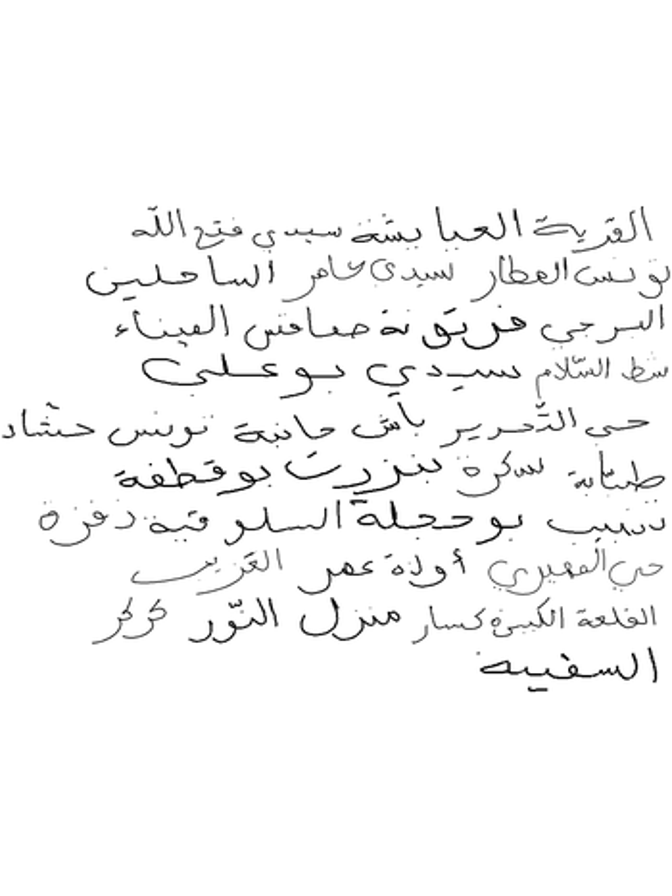 القرية العبابشة سيدي فتح الله
تونس العطار سيدي عامر الساحلين
البرجي فريقونة صفاقس الميناء
شط السّلام سيدي بو علي
حي التّحرير باش حانبة تونس حشّاد
طبّانة سكرة بنزرت بوقطفة
تنبيب بوحجلة السلوقية زغزة
حي المهيري أولاد عمر الغريب
القلعة الكبيرة كسار منزل النّور كركر
السفينة